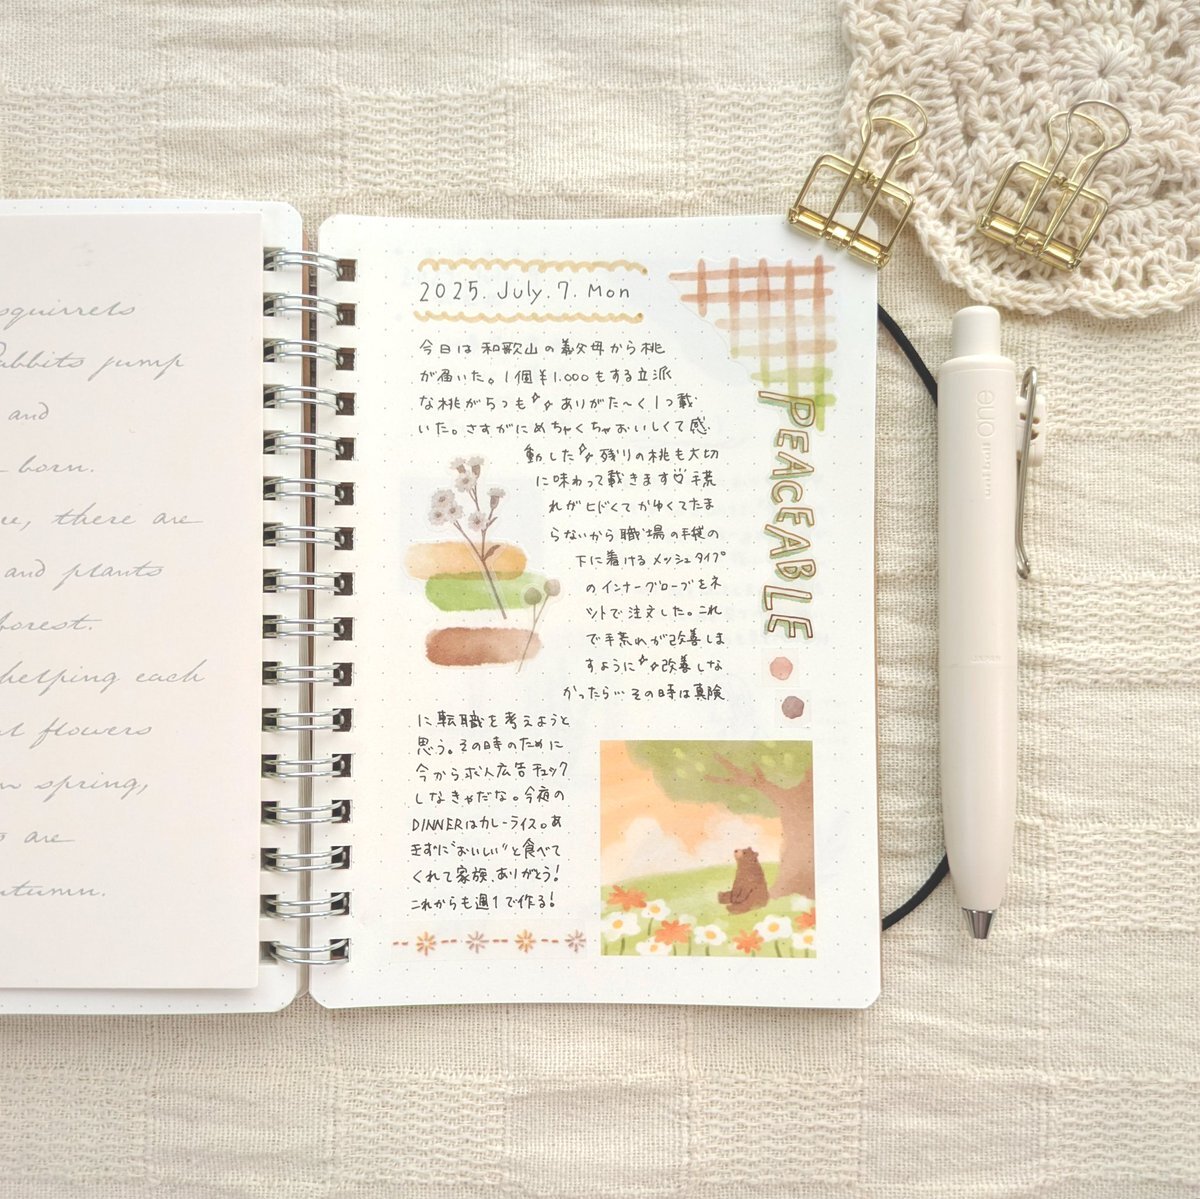 squirrels
Rabbits jump
and
born.
there are
and plants
forest.
helping each
flowers
spring,
are
autumn.
2025. July. 7. Mon
今日は和歌山の義父母から桃
が届いた。1個¥1.000もする立派
な桃が5つも✨ありがた〜く1つ戴
いた。さすがにめちゃくちゃおいしくて感
動した✨残りの桃も大切
に味わって戴きます♡手荒
れがヒドくてかゆくてたま
らないから職場の手袋の
下に着けるメッシュタイプ
のインナーグローブをネ
ットで注文した。これ
で手荒れが改善しま
すように✨改善しな
かったら…その時は真険
に転職を考えようと
思う。その時のために
今から求人広告チェック
しなきゃだな。今夜の
DINNERはカレーライス。あ
きずに"おいしい"と食べて
くれて家族、ありがとう!
これからも週1で作る!
PEACEABLE
uni-ball one
JAPAN